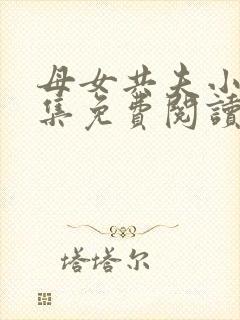 母女共夫小
集免費閱讀
塔塔尔